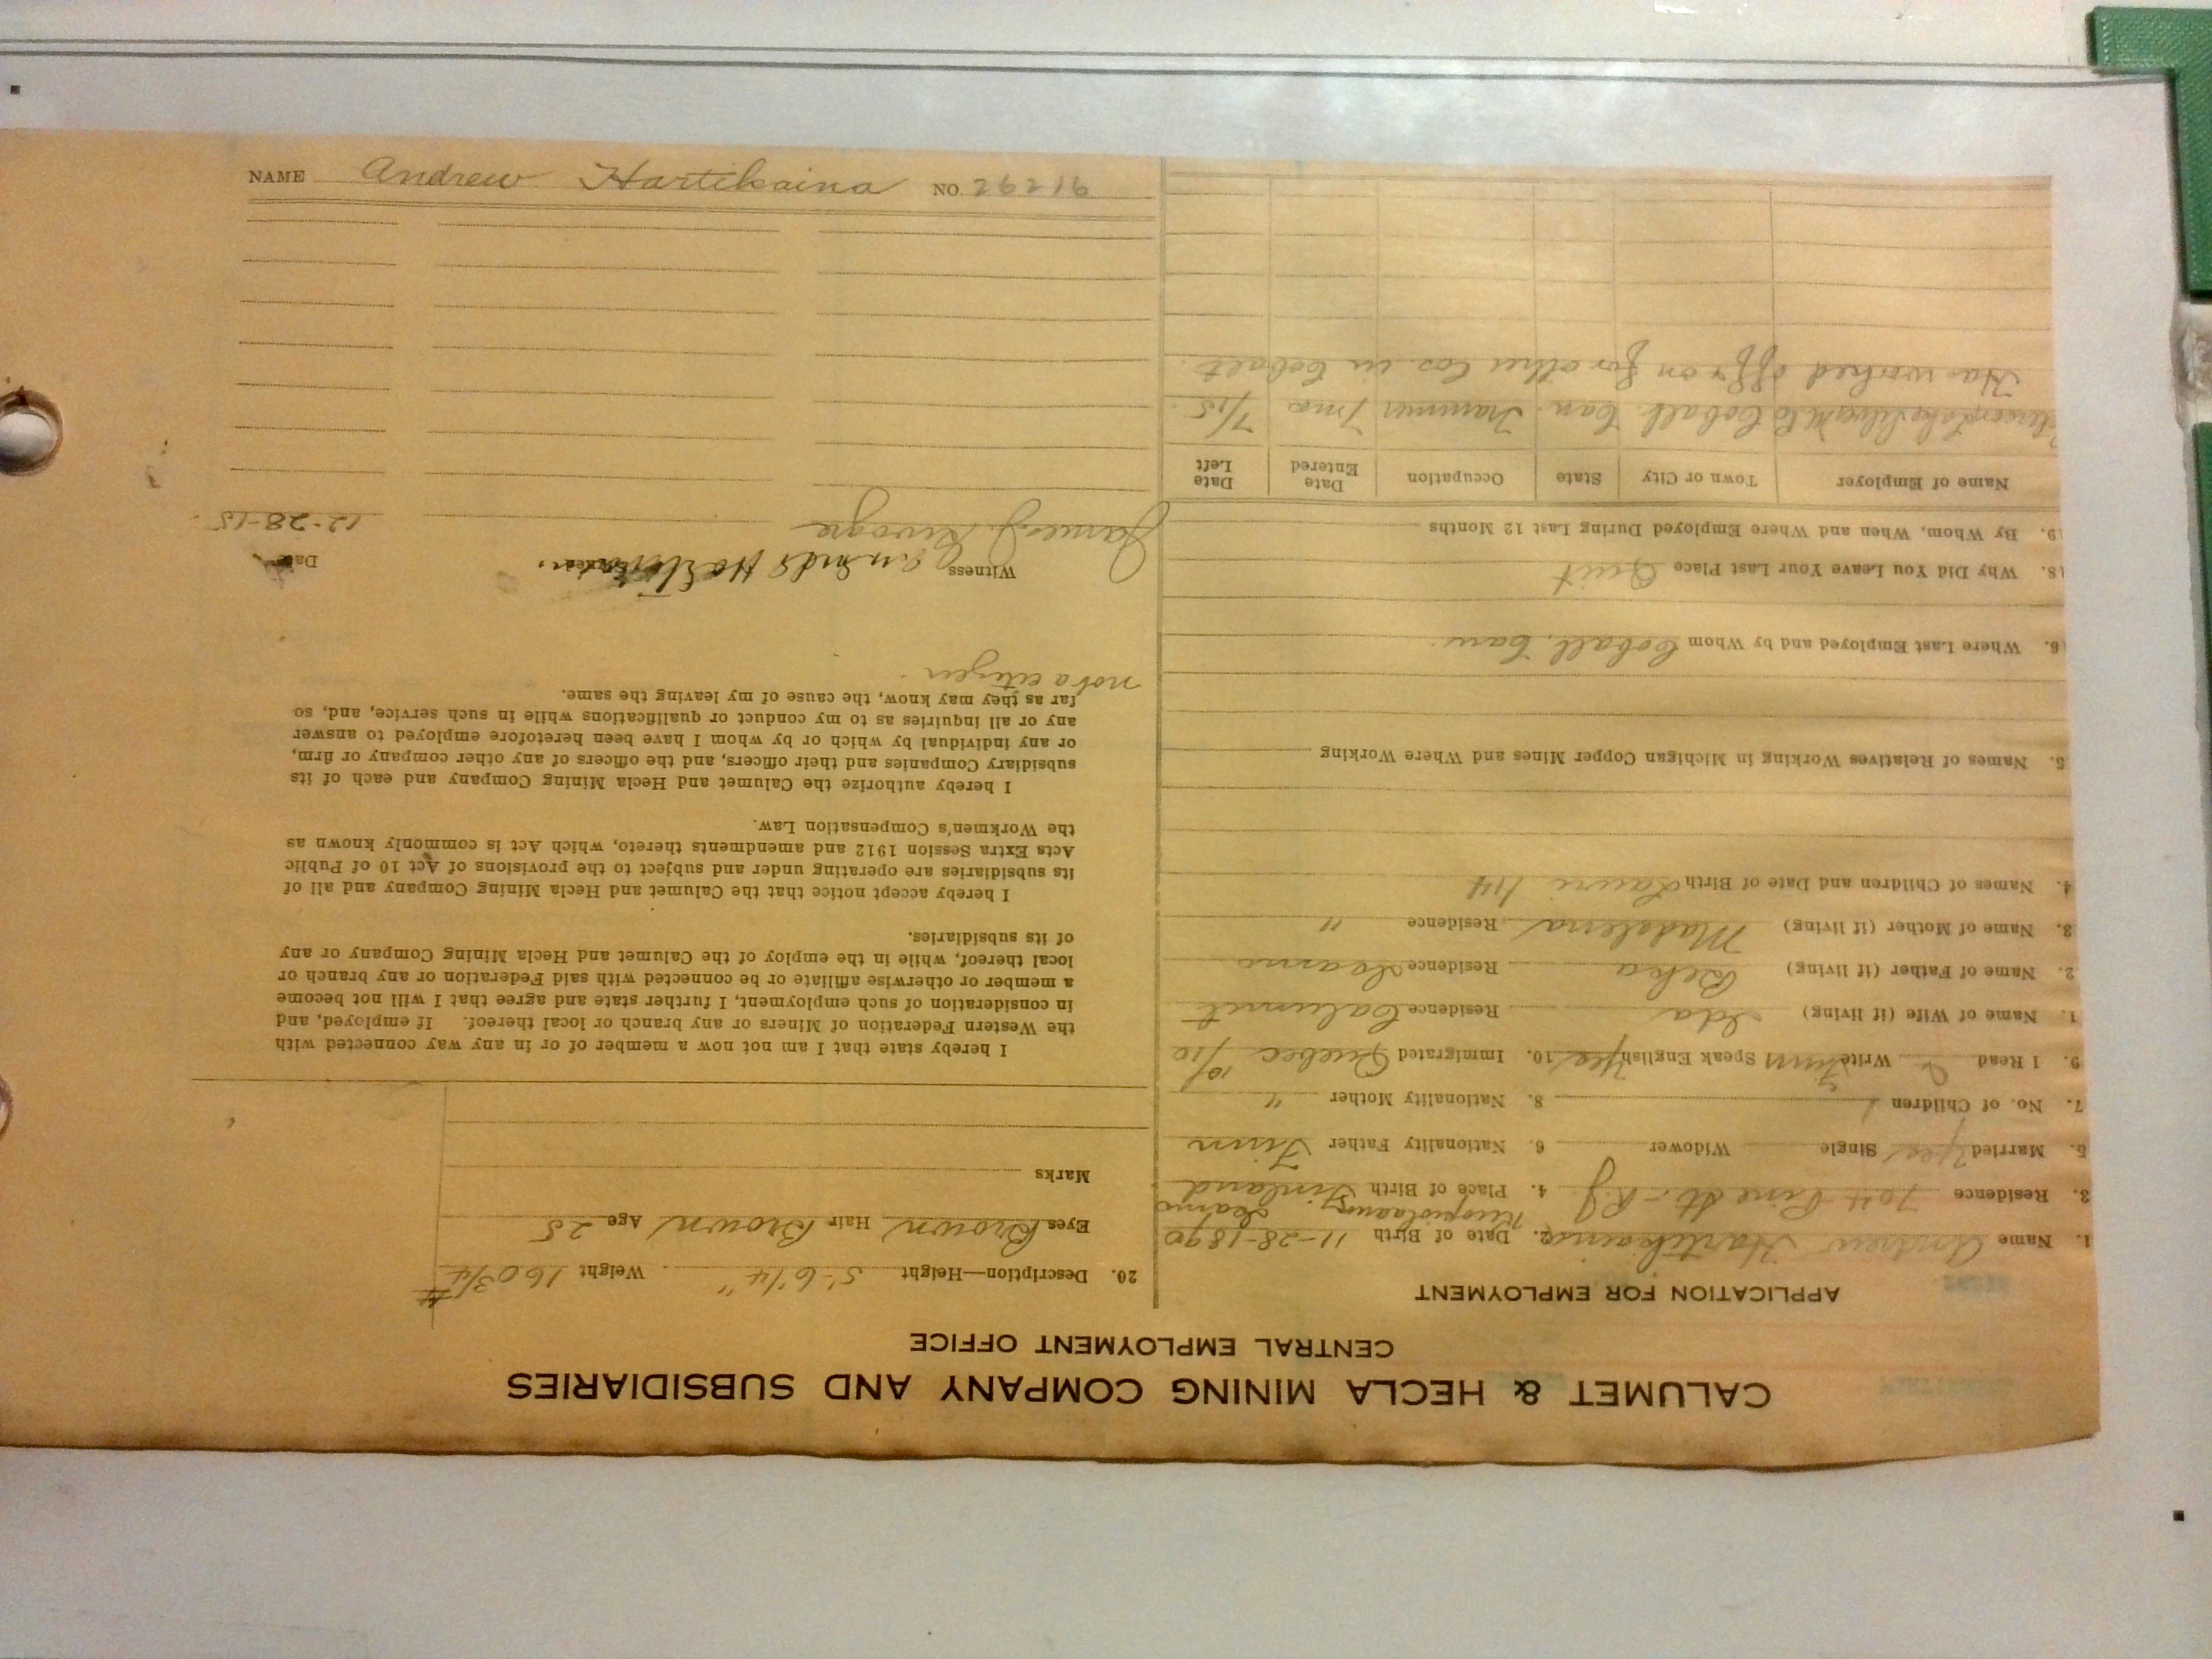 CALUMET & HECLA MINING COMPANY AND SUBSIDIARIES
CENTRAL EMPLOYMENT OFFICE
APPLICATION FOR EMPLOYMENT
1. Name Andrew Hartikaina 2. Date of Birth 11-28-1890
3. Residence 704 Pine St. - R.J. 4. Place of Birth Finland
5. Married Yes Single Widower 6. Nationality Father Finn
7. No. of Children 1 8. Nationality Mother "
9. I Read & Write Finn Speak English Yes 10. Immigrated Quebec 10/10
1. Name of Wife (if living) Ida Residence Calumet
2. Name of Father (if living) Residence
3. Name of Mother (if living) Madalena Residence "
4. Names of Children and Date of Birth Lauri 1/14
5. Names of Relatives Working in Michigan Copper Mines and Where Working
6. Where Last Employed and by Whom Cobalt, Can.
18. Why Did You Leave Your Last Place Quit
19. By Whom, When and Where Employed During Last 12 Months
Name of Employer Town or City State Occupation Date Entered Date Left
Cobalt Can. Trammer 7mo 7/15
Has worked off & on for other Cos. in Cobalt.
20. Description—Height 5'-6 1/4" Weight 160 3/4 #
Eyes Brown Hair Brown Age 25
Marks
I hereby state that I am not now a member of or in any way connected with
the Western Federation of Miners or any branch or local thereof. If employed, and
in consideration of such employment, I further state and agree that I will not become
a member or otherwise affiliate or be connected with said Federation or any branch or
local thereof, while in the employ of the Calumet and Hecla Mining Company or any
of its subsidiaries.
I hereby accept notice that the Calumet and Hecla Mining Company and all of
its subsidiaries are operating under and subject to the provisions of Act 10 of Public
Acts Extra Session 1912 and amendments thereto, which Act is commonly known as
the Workmen's Compensation Law.
I hereby authorize the Calumet and Hecla Mining Company and each of its
subsidiary Companies and their officers, and the officers of any other company or firm,
or any individual by which or by whom I have been heretofore employed to answer
any or all inquiries as to my conduct or qualifications while in such service, and, so
far as they may know, the cause of my leaving the same.
not a citizen.
Witness Date
James J. 12-28-15
NAME Andrew Hartikaina NO. 29216